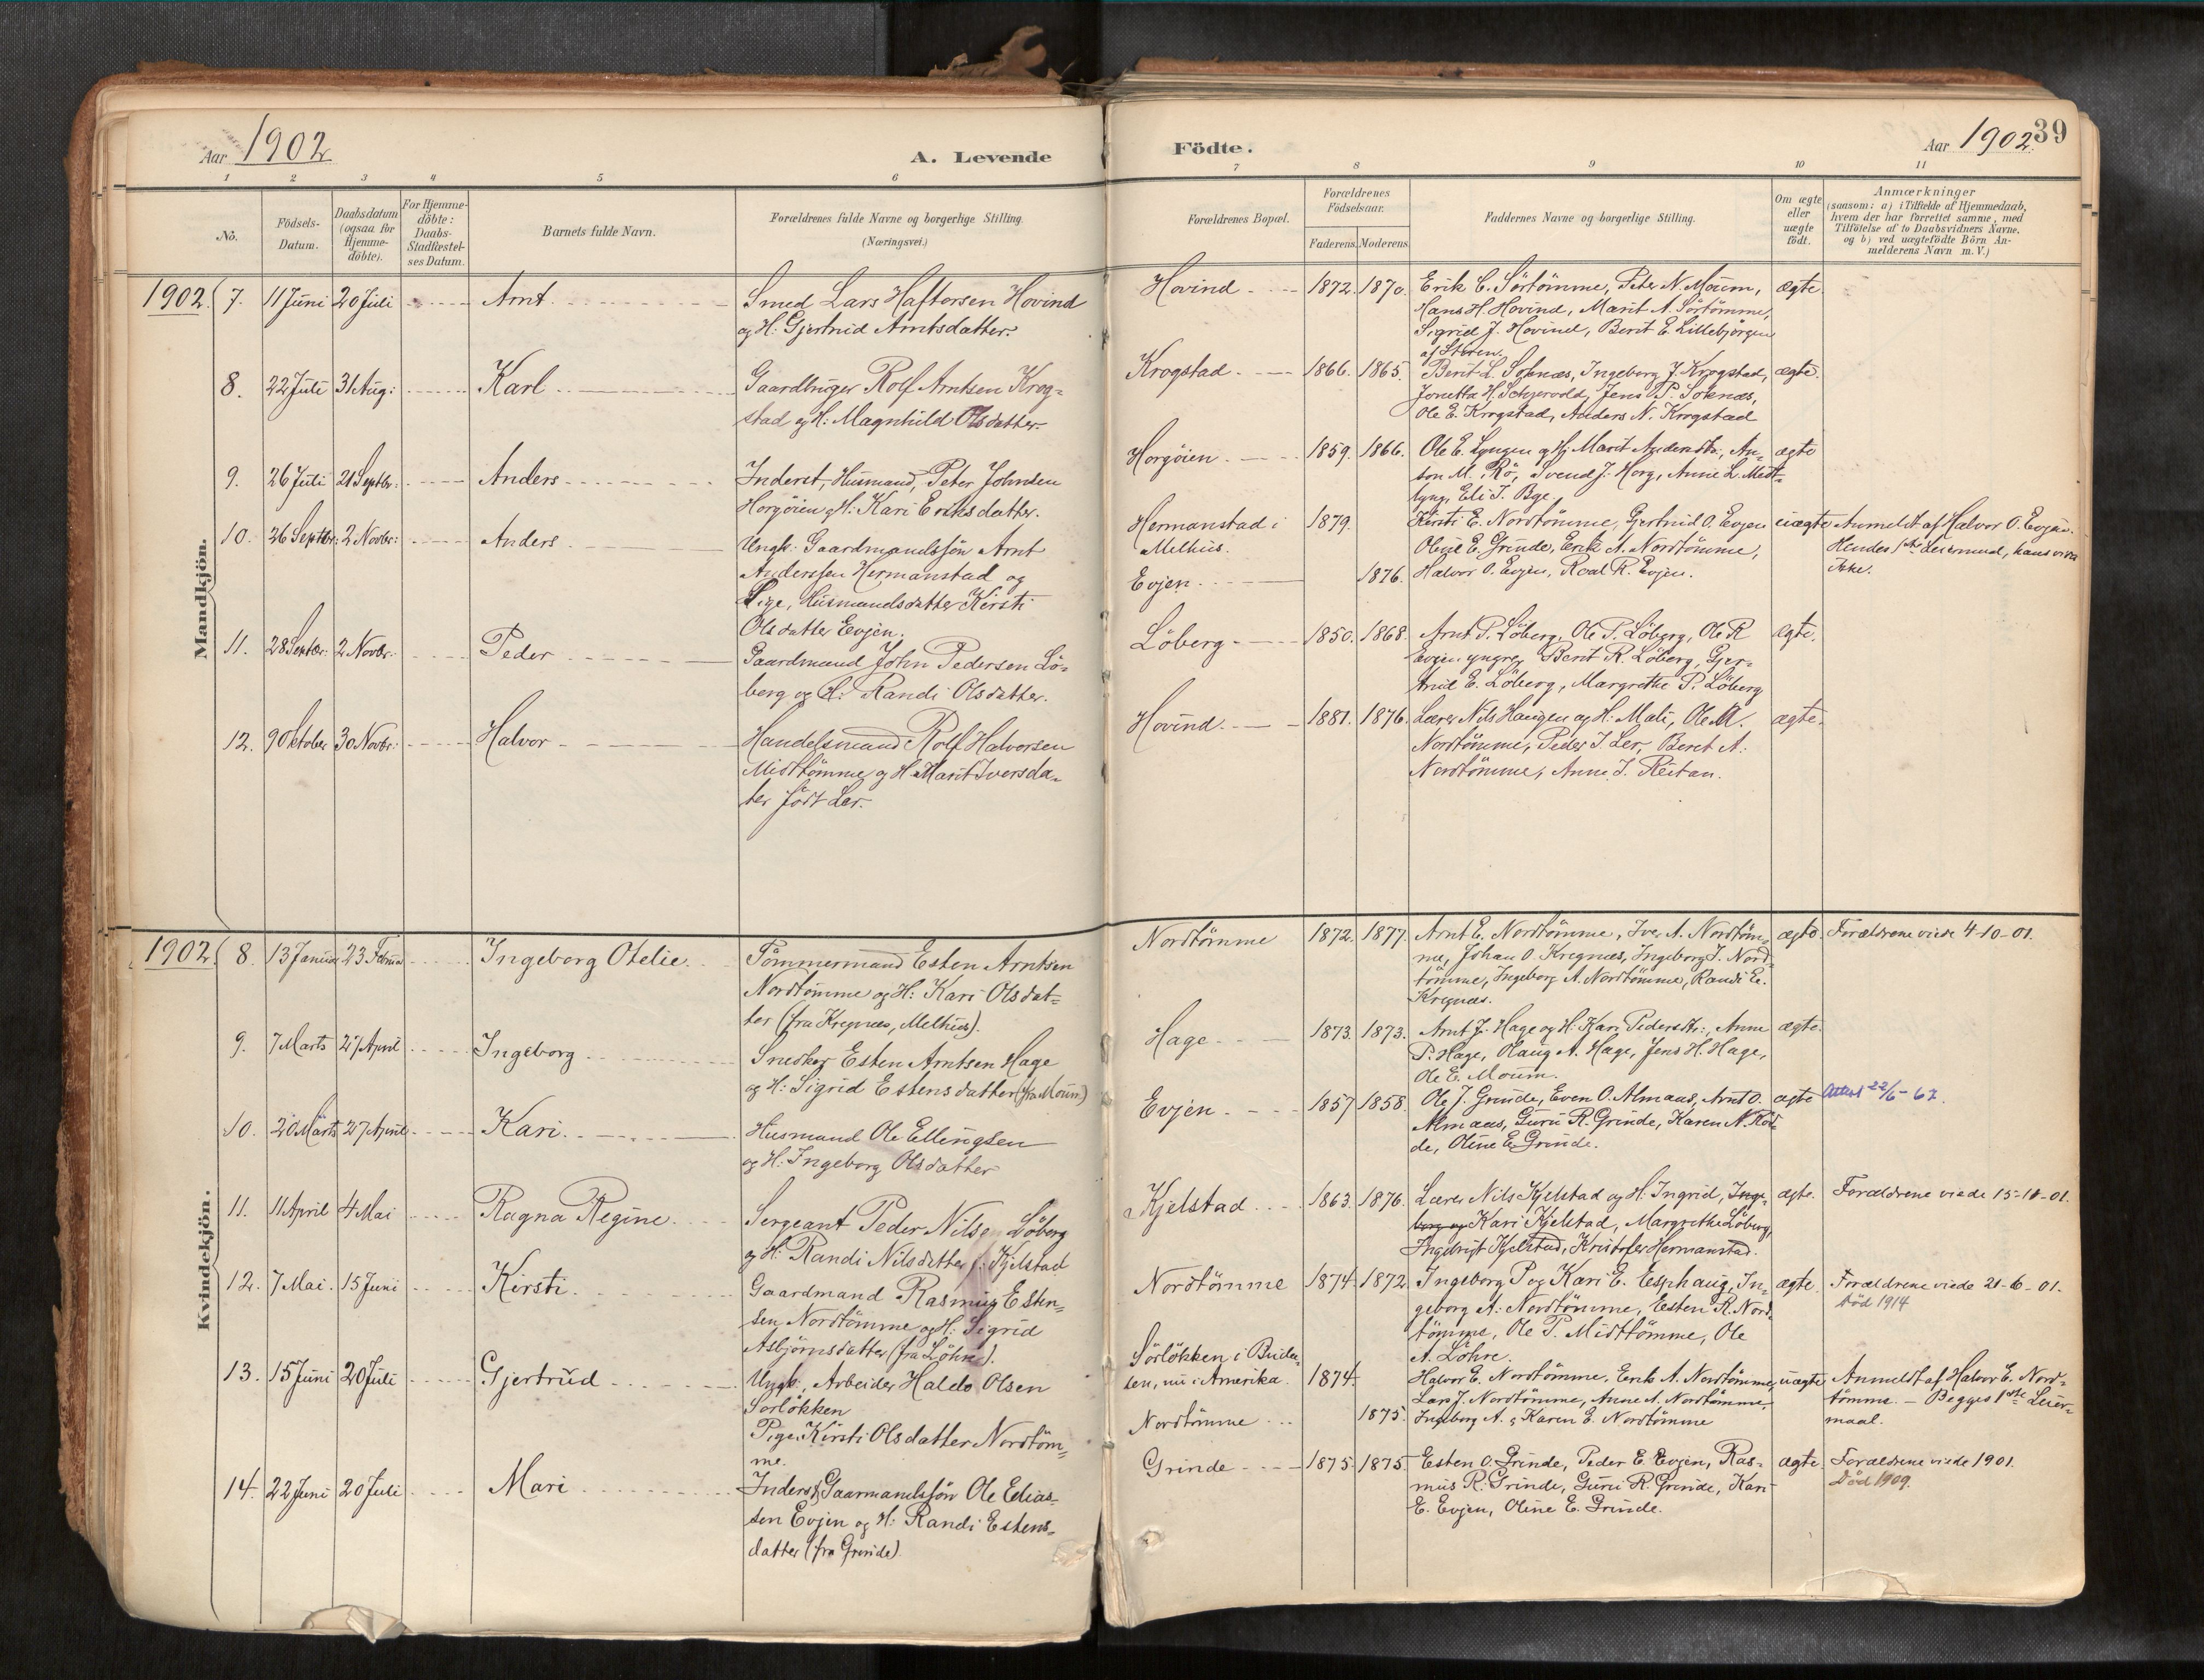 Aar 1902
A. Levende
Födte.
Aar 1902.
39
1 2 3 4 5 6 7 8 9 10 11
No.
Födsels-
Datum.
Daabsdatum
(ogsaa for
Hjemme-
döbte).
For Hjemme-
döbte:
Daabs-
Stadfæstel-
ses Datum.
Barnets fulde Navn.
Forældrenes fulde Navne og borgerlige Stilling.
(Næringsvei.)
Forældrenes Bopæl.
Forældrenes
Födselsaar.
Faderens. Moderens.
Faddernes Navne og borgerlige Stilling.
Om ægte
eller
uægte
födt.
Anmærkninger
(saasom: a) i Tilfælde af Hjemmedaab,
hvem der har forrettet samme, med
Tilföielse af to Daabsvidners Navne.
og b) ved uægtefödte Börn An-
melderens Navn m. V.)
Mandkjön.
1902. 7. 11 Juni 20 Juli Arnt
Smed Lars Haftorsen Hovind
og H: Gjertrud Arntsdatter.
Hovind 1872. 1870.
Erik E. Sörtömme, Peter N. Moum,
Hans H. Hovind, Marit A. Sörtömme,
Sigrid J. Hovind, Berit E. Lillebjörgen
af Stören.
ægte.
8. 22 Juli 31 Aug: Karl
Gaardbruger Rolf Arntsen Krog-
stad og H: Magnhild Olsdatter.
Krogstad 1866. 1865.
Berit L. Soknæs, Ingeborg J. Krogstad,
Jonetta H. Schjervold, Jens P. Soknæs,
Ole E. Krogstad, Anders N. Krogstad
ægte.
9. 26 Juli 21 Septbr: Anders
Inderst, Husmand, Peter Johnsen
Horgöien og H: Kari Eriksdatter.
Horgöien 1859. 1866.
Ole E. Lyngen og H: Marit Andersdtr., An-
ton M. Rö, Svend J. Horg, Anne L. Mest-
lyng, Eli J. Bge
ægte
10. 26 Septbr: 2 Novbr: Anders
Ungk: Gaardmandssön Arnt
Anderssen Hermanstad og
Pige, Husmandsdatter Kirsti
Olsdatter Evjen.
Hermanstad i
Melhus.
Evjen
1879.
1876.
Kirsti E. Nordtömme, Gjertrud O. Evjen
Oline E. Grinde, Erik A. Nordtömme,
Halvor O. Evjen, Roal R. Evjen.
uægte
Anmeldt af Halvor O. Evjen.
Hendes 1ste Leiermaal, hans vides
ikke.
11. 28 Septbr: 2 Novbr: Peder
Gaardmand John Pedersen Lö-
berg og H: Randi Olsdatter.
Löberg 1850. 1868.
Arnt P. Löberg, Ole P. Löberg, Ole R
Evjen yngre, Berit R. Löberg, Gjer-
trud E. Löberg, Margrethe P. Löberg
ægte.
12. 9 Oktober 30 Novbr: Halvor
Handelsmand Rolf Halvorsen
Midttömme og H: Marit Iversdat-
ter född Ler.
Hovind 1881. 1876.
Lærer Nils Haugen og H: Mali, Ole A.
Nordtömme, Peder J. Ler, Beret A.
Nordtömme, Anne J. Reitan.
ægte.
Kvindekjön.
1902. 8. 13 Januar 23 Februar Ingeborg Otelie.
Tömmermand Esten Arntsen
Nordtömme og H: Kari Olsdat-
ter (fra Kregnæs, Melhus).
Nordtömme 1872. 1877.
Arnt E. Nordtömme, Iver A. Nordtöm-
me, Johan O. Kregnæs, Ingeborg J. Nord-
tömme, Ingeborg A. Nordtömme, Randi E.
Kregnæs.
ægte.
Forældrene viede 4-10-01.
9. 7 Marts 27 April Ingeborg
Snedker Esten Arntsen Hage
og H: Sigrid Estensdatter (fra Moum)
Hage 1873. 1873.
Arnt J. Hage og H: Kari Pedersdtr:, Anne
P. Hage, Olaug A. Hage, Jens H. Hage,
Ole E. Moum.
ægte.
10. 20 Marts 27 April Kari.
Husmand Ole Ellingsen
og H: Ingeborg Olsdatter
Evjen 1857 1858
Ole J. Grinde, Even O. Almaas, Arnt O.
Almaas, Guru R. Grinde, Karen N. Rod-
de, Oline E. Grinde.
ægte
Attest 22/6-67.
11. 11 April 4 Mai Ragna Regine
Sergeant Peder Nilsen Löberg
og H: Randi Nilsdatter f: Kjelstad
Kjelstad 1863. 1876.
Lærer Nils Kjelstad og H: Ingrid, Inge-
borg og Kari Kjelstad, Margrethe Löberg,
Ingebrigt Kjelstad, Kristofer Hermanstad.
ægte.
Forældrene viede 15-11-01.
12. 7 Mai. 15 Juni Kirsti
Gaardmand Rasmus Esten-
sen Nordtömme og H: Sigrid
Asbjörnsdatter (fra Löhre).
Nordtömme 1874. 1872.
Ingeborg P. og Kari E. Esphaug, In-
geborg A. Nordtömme, Esten R. Nord-
tömme, Ole P. Midttömme, Ole
A. Löhre.
ægte.
Forældrene viede 21-6-01.
Död 1914
13. 15 Juni 20 Juli Gjertrud
Ungk:, Arbeider Haldo Olsen
Sörlökken
Pige Kirsti Olsdatter Nordtöm-
me.
Sörlökken i Buda-
len, nu i Amerika.
Nordtömme
1874.
1875.
Halvor E. Nordtömme, Erik A. Nordtömme,
Lars J. Nordtömme, Anne A. Nordtömme,
Ingeborg A. & Karen E. Nordtömme
uægte
Anmeldt af Halvor E. Nord-
tömme. - Begges 1ste Leier-
maal.
14. 22 Juni 20 Juli Mari
Inderst, Gaarmandssön Ole Elias-
sen Evjen og H: Randi Estens-
datter (fra Grinde).
Grinde 1875. 1875.
Esten O. Grinde, Peder E. Evjen, Ras-
mus R. Grinde, Guru R. Grinde, Kari
E. Evjen, Oline E. Grinde.
ægte.
Forældrene viede 1901.
Död 1909.